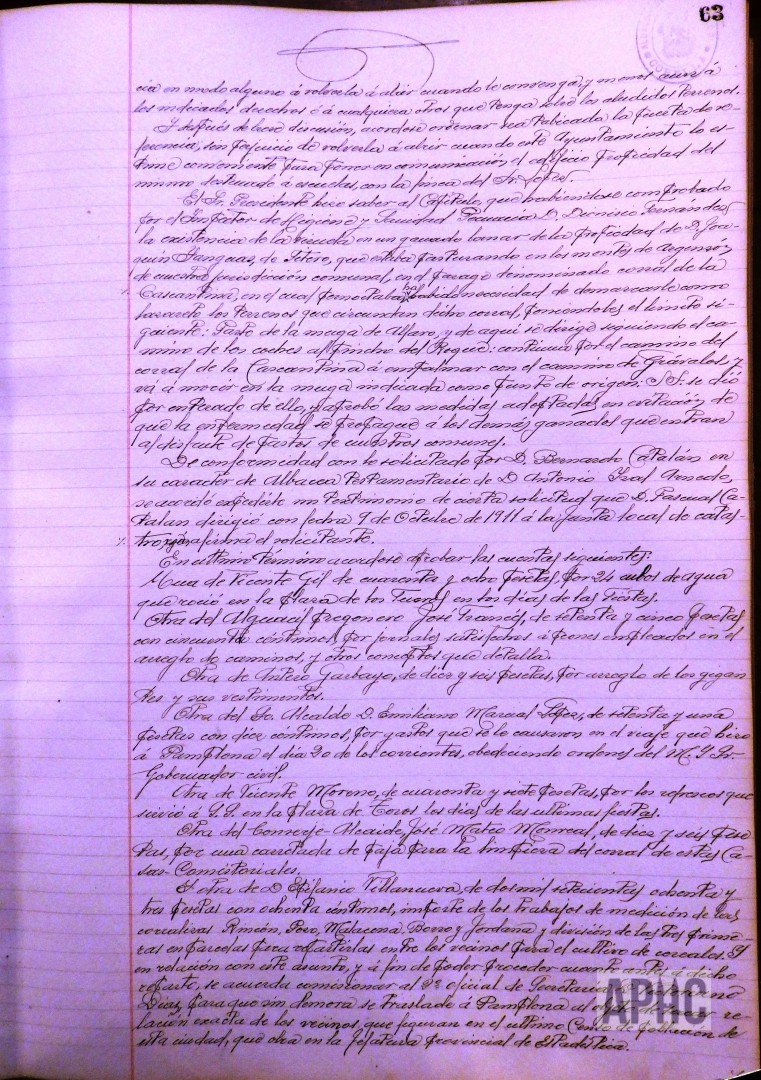 63
cia en modo alguno á volverla á abrir cuando le convenga y menos aun á
los indicados derechos ó á cualquiera otros que tenga sobre los aludidos terrenos.
Y después de breve discusión, acordose ordenar sea tabicada la puerta de re-
ferencia, sin perjuicio de volverla á abrir cuando este Ayuntamiento lo es-
time conveniente para poner en comunicación el edificio propiedad del
mismo destinado á escuelas, con la finca del Sr. Lopez.
El Sr. Presidente hizo saber al Capítulo, que habiendose comprobado
por el Inspector de Higiene y Sanidad Pecuaria D. Dionisio Fernández
la existencia de la viruela en un ganado lanar de la propiedad de D. Joa-
quin Yanguas, de Fitero, que estaba pasturando en los montes de Argenzón
de nuestra jurisdicción comunal, en el paraje denominado corral de la
Cascantina, en el cual habido necesidad de demarcarle como
lazareto los terrenos que circundan dicho corral, poniendoles el limite si-
guiente: Parte de la muga de Alfaro, y de aqui se dirige siguiendo el ca-
mino de los coches al Pincho del Roque: continua por el camino del
corral de la Cascantina á empalmar con el camino de Grávalos y
vá á morir en la muga indicada como punto de origen: S.S. se dió
por enterado de ello, y aprobó las medidas adoptadas en evitación de
que la enfermedad se propague á los demás ganados que entran
al disfrute de pastos de nuestros comunes.
De conformidad con lo solicitado por D. Bernardo Catalán en
su caracter de Albacea testamentario de D. Antonio
se acordó expedirle un testimonio de cierta solicitud que D. Pascual Ca-
talan dirigió con fecha 9 de Octubre de 1911 á la Junta local de catas-
tro, según afirma el solicitante.
En ultimo término acordose aprobar las cuentas siguientes:
Una de Vicente Gil de cuarenta y ocho pesetas, por 24 cubos de agua
que roció en la plaza de los Fueros en los dias de las Fiestas.
Otra del Alguacil pregonero José Francés, de setenta y cinco pesetas
con cincuenta céntimos, por jornales satisfechos á peones empleados en el
arreglo de caminos, y otros conceptos que detalla.
Otra de Antero Garbayo, de diez y seis pesetas, por arreglo de los gigan
tes y sus vestimentos.
Otra del Sr. Alcalde D. Emiliano Marcal López, de setenta y una
pesetas con diez céntimos, por gastos que se le causaron en el viaje que hizo
á Pamplona el dia 20 de los corrientes, obedeciendo ordenes del M. Y. Sr.
Gobernador civil.
Otra de Vicente Moreno, de cuarenta y siete pesetas, por los refrescos que
sirvió á S.S. en la plaza de Toros los dias de las ultimas fiestas.
Otra del Conserje-Alcaide, José Mateo Monreal, de diez y seis pese
tas, por una carretada de paja para la limpieza del corral de estas Ca-
sas-Consistoriales.
Y otra de D. Epifanio Villanueva, de dos mil setecientas ochenta y
tres pesetas con ochenta céntimos, importe de los trabajos de medición de las
corralizas Rincón, Pozo, y división de las tres prime
ras en parcelas para repartirlas entre los vecinos para el cultivo de cereales. Y
en relación con este asunto, y á fin de poder proceder cuanto antes á dicho
reparto, se acuerda comisionar al 2º oficial de Secretaria
Dias, para que sin demora se traslade á Pamplona re-
lación exacta de los vecinos que figuran en el ultimo Censo de población de
esta ciudad, que obra en la Jefatura Provincial de Estadística.
APHC